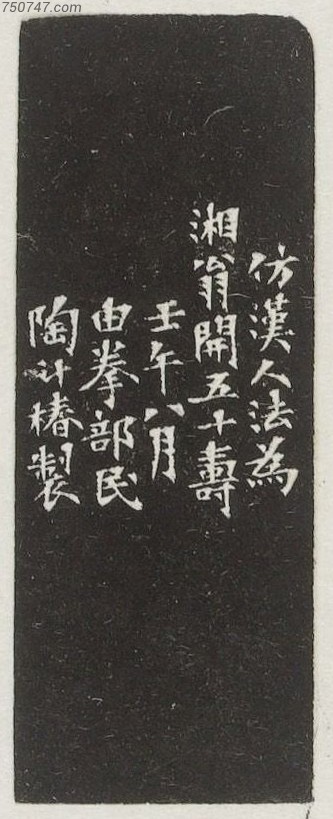 750747.com
仿漢人法為
湘翁開五十壽
壬午八月
由拳部民
陶計椿製